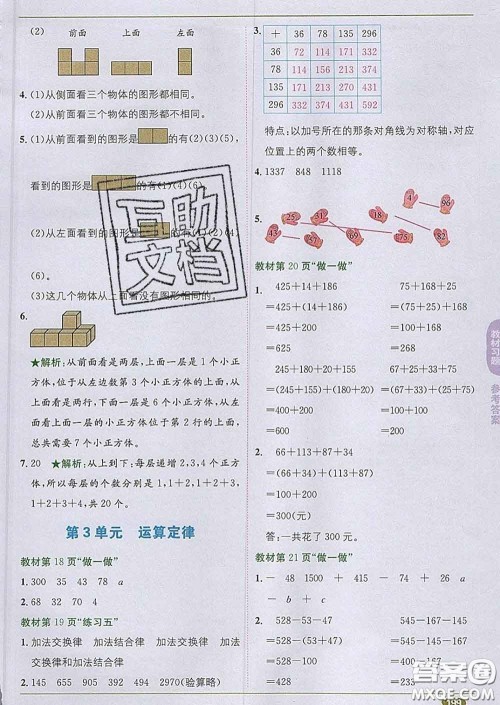 (2) 前面 上面 左面
4. (1)从侧面看三个物体的图形都相同。
(2)从前面看三个物体的图形都不相同。
5. (1)从前面看到的图形是 的有(2)(3)(5),
看到的图形是 的有(1)(4)(6)。
(2)从左面看到的图形是
(6)。
(3)这几个物体从上面看没有图形相同的。
6.
★解析:从前面看是两层,上面一层是1个小正
方体,位于从左边数第3个小正方体的上面,从
上面看是两行,下面一行是6个小正方体,从左
面看上面一层的小正方体位于第2行的上面。
总共需要7个小正方体。
7. 20 ★解析:从上到下:每层递增2,3,4,…个
小正方体,所以每层的个数分别是1,1+2,1+2+3,
1+2+3+4,共20个。
第3单元 运算定律
教材第18页“做一做”
1. 300 35 43 78 a
2. 68 32 70 4
教材第19页“练习五”
1. 加法交换律 加法结合律 加法交换律 加法
交换律和加法结合律
2. 145 655 905 392 494 2970(验算略)
3.
+ 36 78 135 296
36 72 114 171 332
78 114 156 213 374
135 171 213 270 431
296 332 374 431 592
特点:以加号所在的那条对角线为对称轴,对应
位置上的两个数相等。
4. 1337 848 1118
5.
4 96
25 31 76 69
43 57 75 24
教材第20页“做一做”
1. 425+14+186 75+168+25
=425+(14+186) =(75+25)+168
=425+200 =100+168
=625 =268
245+180+20+155 67+25+33+75
=(245+155)+(180+20) =(67+33)+(25+75)
=400+200 =100+100
=600 =200
2. 66+113+34+87
=(66+34)+(113+87)
=100+200
=300(元)
答:一共花了300元。
教材第21页“做一做”
1. - 48 1500 + 41 - a
- b + c
2. 528-53-47 545-167-145
=528-(53+47) =545-145-167
=528-100 =400-167
=428 =233
528-(150+128)
教材习题
参考答案
互助
文档
答案圈
MXQE.COM
199